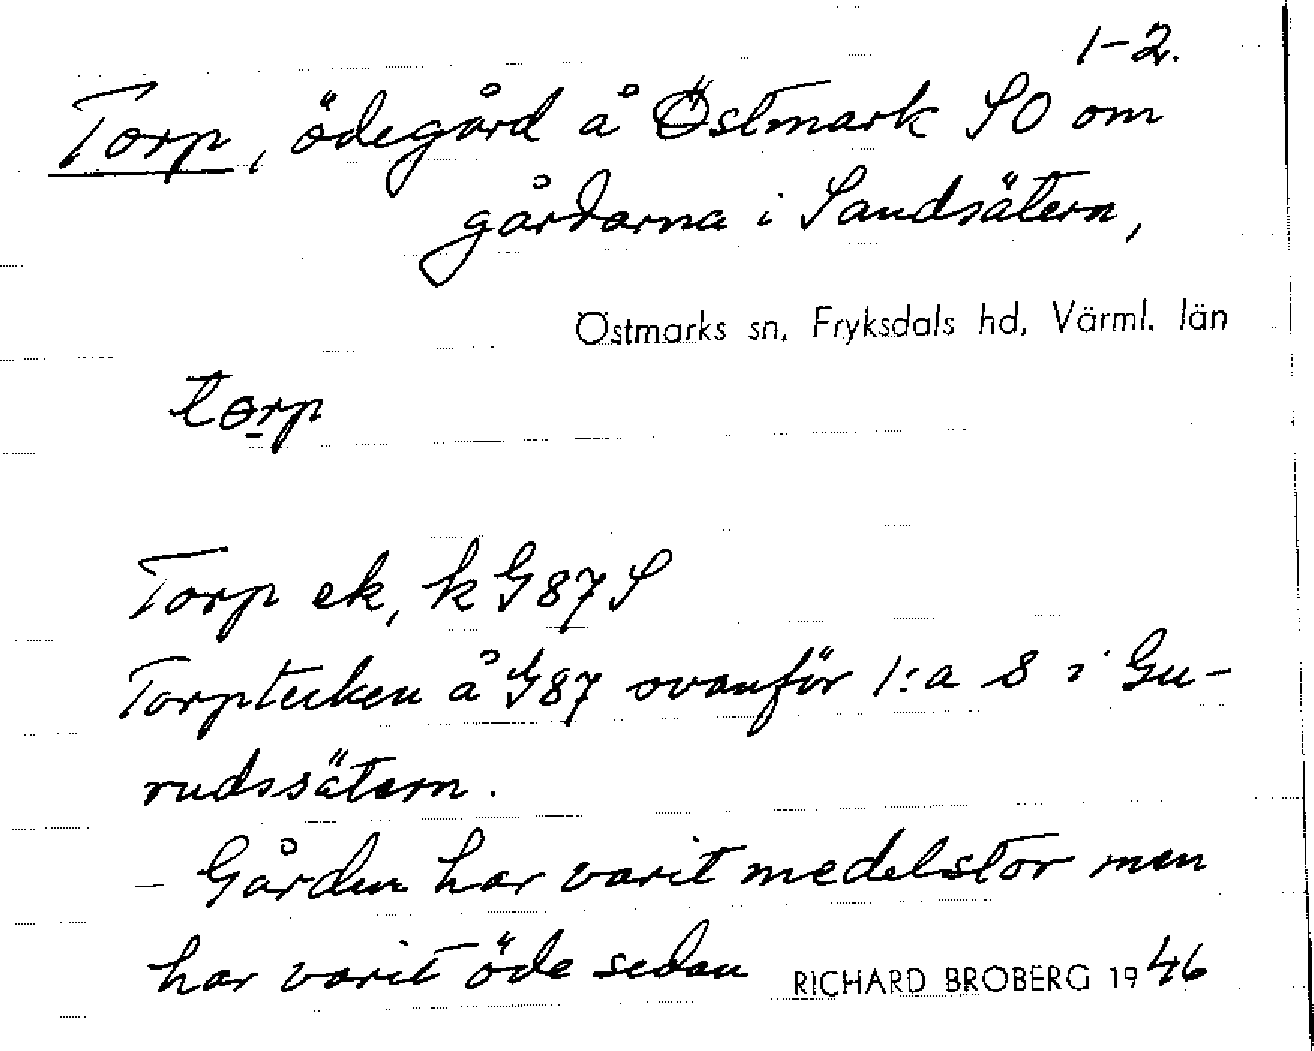 1-2.
Torp, ödegård å Östmark SO om
gårdarna i Sandsätern,
Östmarks sn, Fryksdals hd, Värml. län
torp
Torp ek, k G87 S
Torptecken å G87 ovanför 1:a s i Gu-
rudssätern.
- Gården har varit medelstor men
har varit öde sedan RICHARD BROBERG 1946